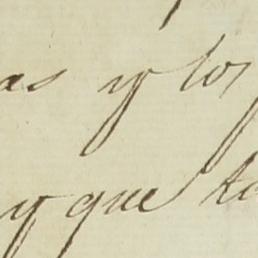 as y los
y que to